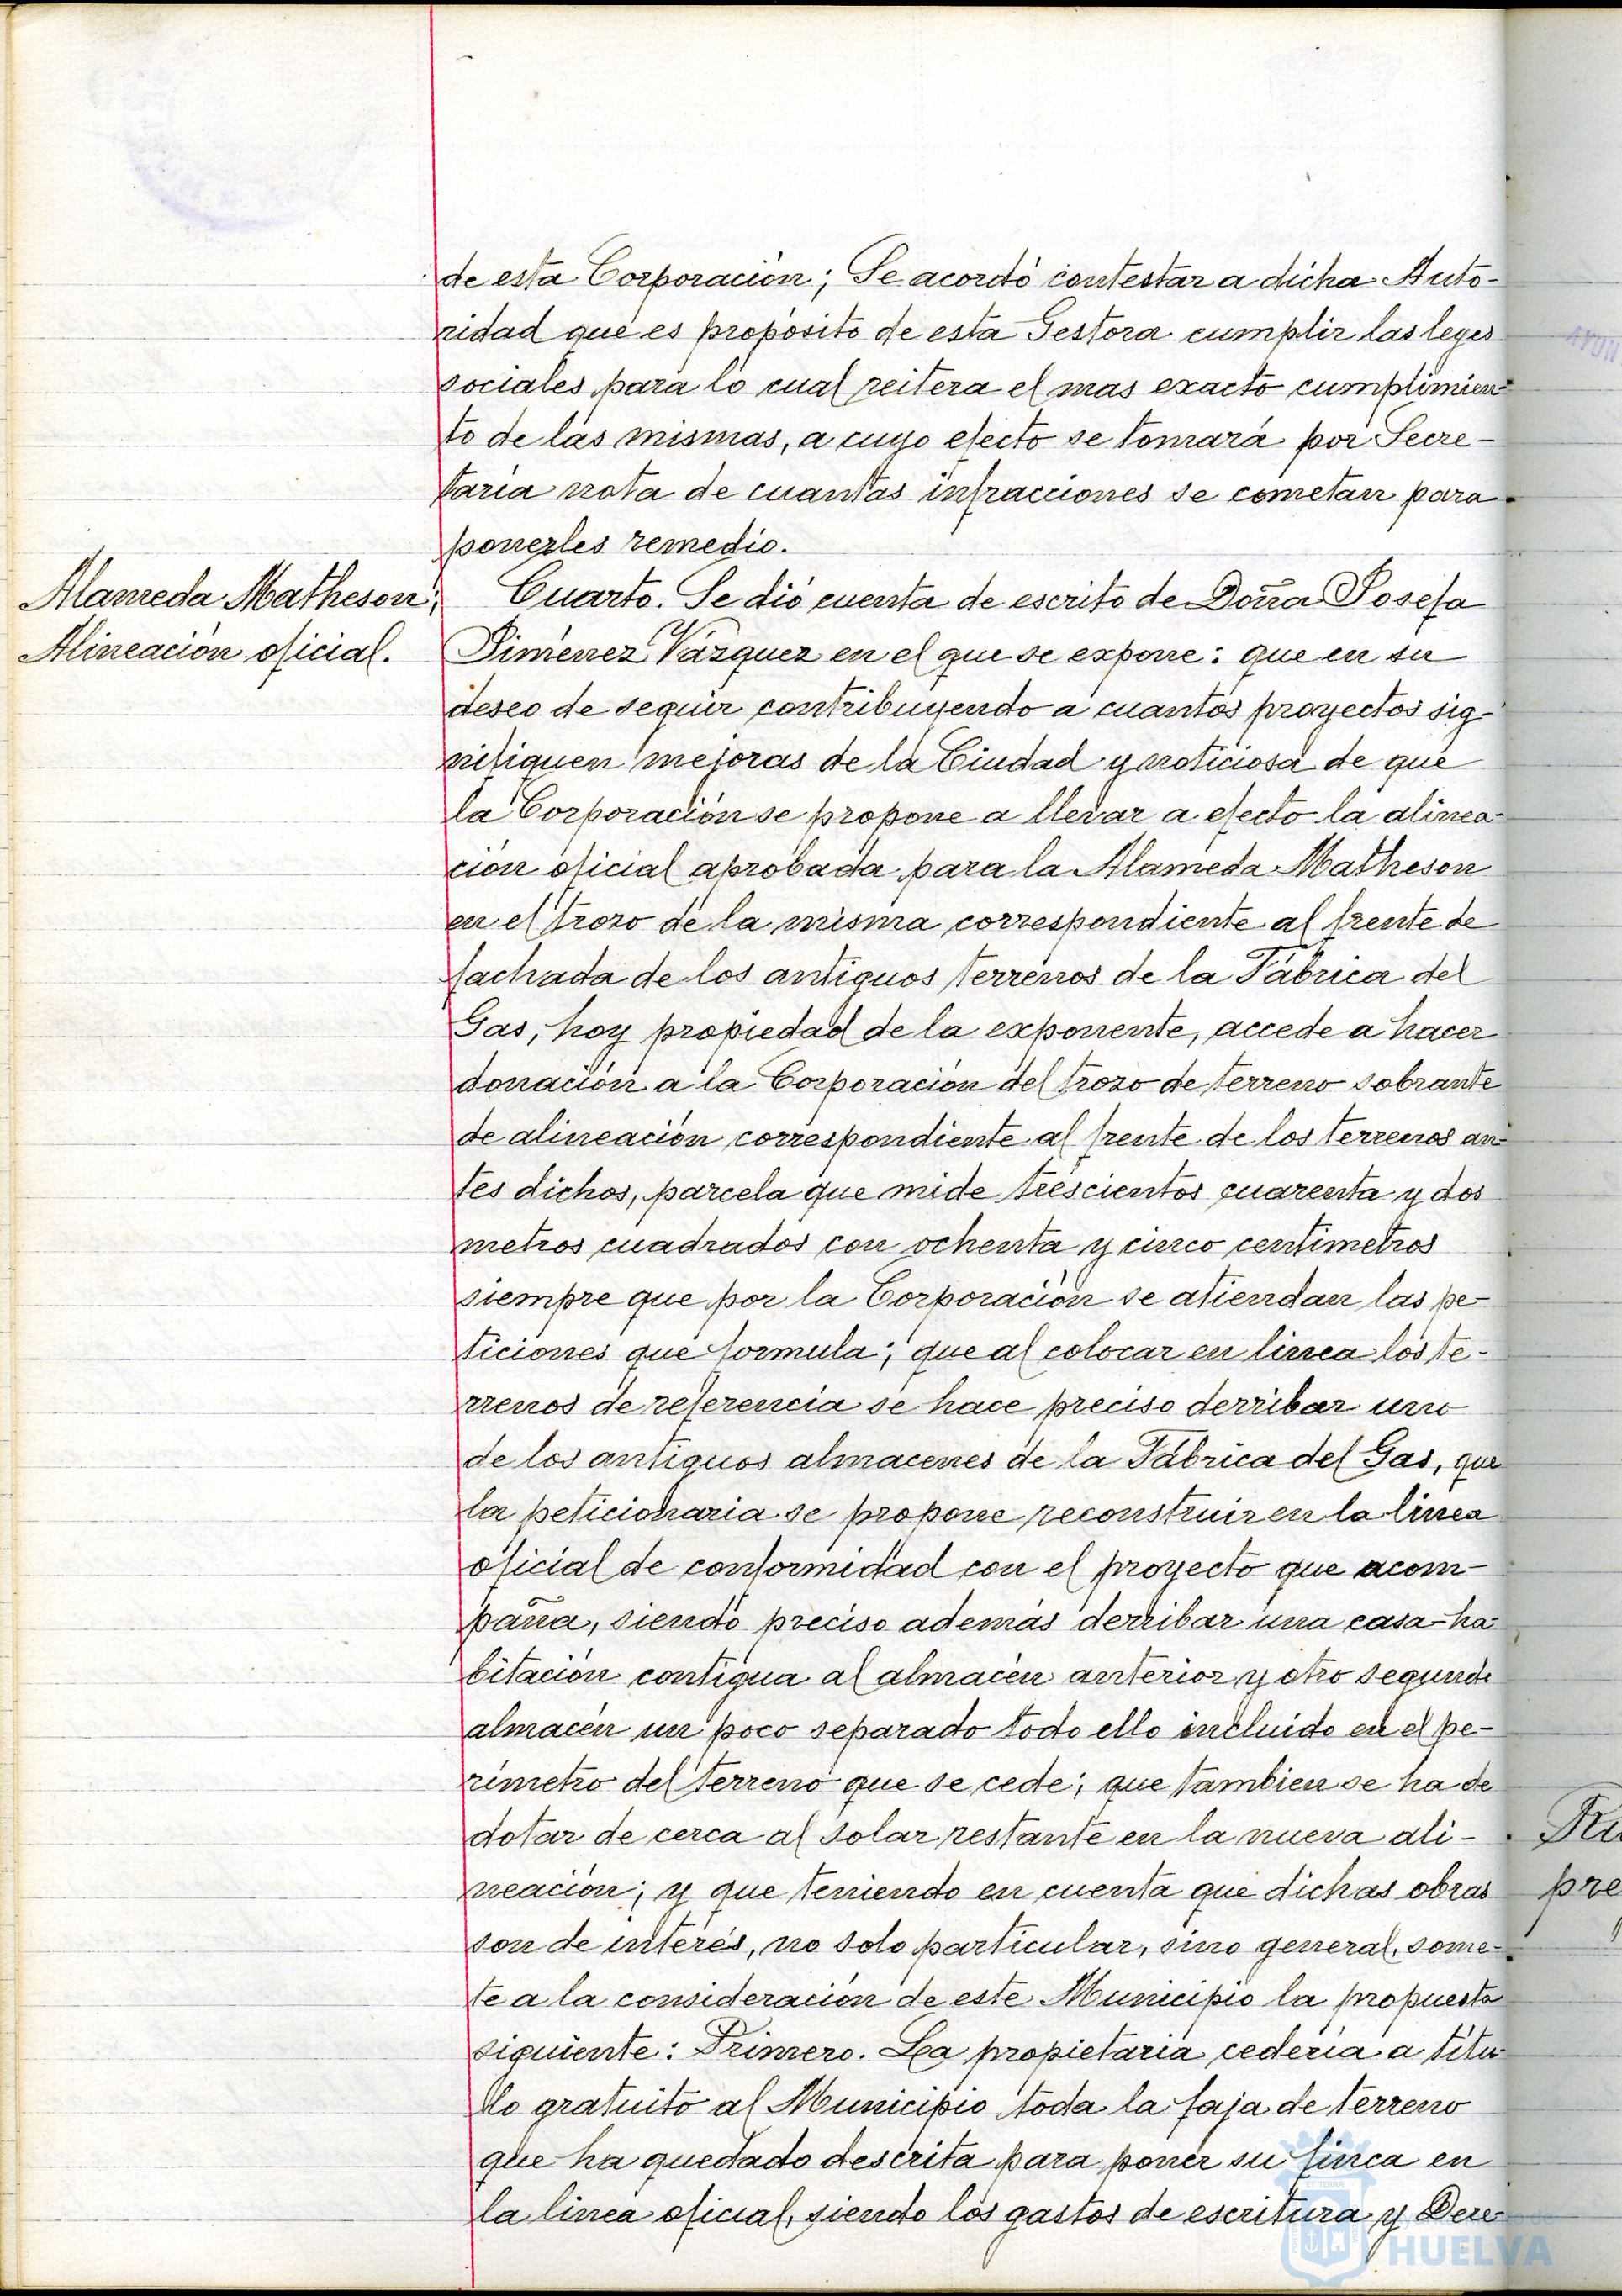 de esta Corporación; Se acordó contestar a dicha Auto-
ridad que es propósito de esta Gestora cumplir las leyes
sociales para lo cual reitera el mas exacto cumplimien-
to de las mismas, a cuyo efecto se tomará por Secre-
taría nota de cuantas infracciones se cometan para
ponerles remedio.
Alameda Matheson;
Alineación oficial.
Cuarto. Se dió cuenta de escrito de Doña Josefa
Jiménez Vázquez en el que se expone: que en su
deseo de seguir contribuyendo a cuantos proyectos sig-
nifiquen mejoras de la Ciudad y noticiosa de que
la Corporación se propone a llevar a efecto la alinea-
ción oficial aprobada para la Alameda Matheson
en el trozo de la misma correspondiente al frente de
fachada de los antiguos terrenos de la Fábrica del
Gas, hoy propiedad de la exponente, accede a hacer
donación a la Corporación del trozo de terreno sobrante
de alineación correspondiente al frente de los terrenos an-
tes dichos, parcela que mide trescientos cuarenta y dos
metros cuadrados con ochenta y cinco centímetros
siempre que por la Corporación se atiendan las pe-
ticiones que formula; que al colocar en linea los te-
rrenos de referencia se hace preciso derribar uno
de los antiguos almacenes de la Fábrica del Gas, que
la peticionaria se propone reconstruir en la linea
oficial de conformidad con el proyecto que acom-
paña, siendo preciso además derribar una casa-ha-
bitación contigua al almacén anterior y otro segundo
almacén un poco separado todo ello incluido en el pe-
rímetro del terreno que se cede; que tambien se ha de
dotar de cerca al solar restante en la nueva ali-
neación; y que teniendo en cuenta que dichas obras
son de interés, no solo particular, sino general, some-
te a la consideración de este Municipio la propuesta
siguiente: Primero. La propietaria cedería a títu-
lo gratuito al Municipio toda la faja de terreno
que ha quedado descrita para poner su finca en
la linea oficial, siendo los gastos de escritura y Dere-
pre
HUELVA